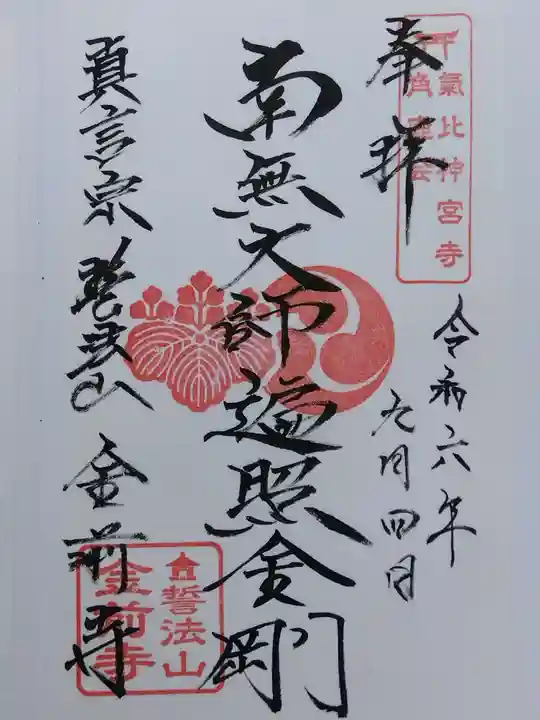 奉拝
氣比神宮寺
令和六年
九月四日
南無大師遍照金剛
真言宗 誓法山 金前寺
誓法山
金前寺